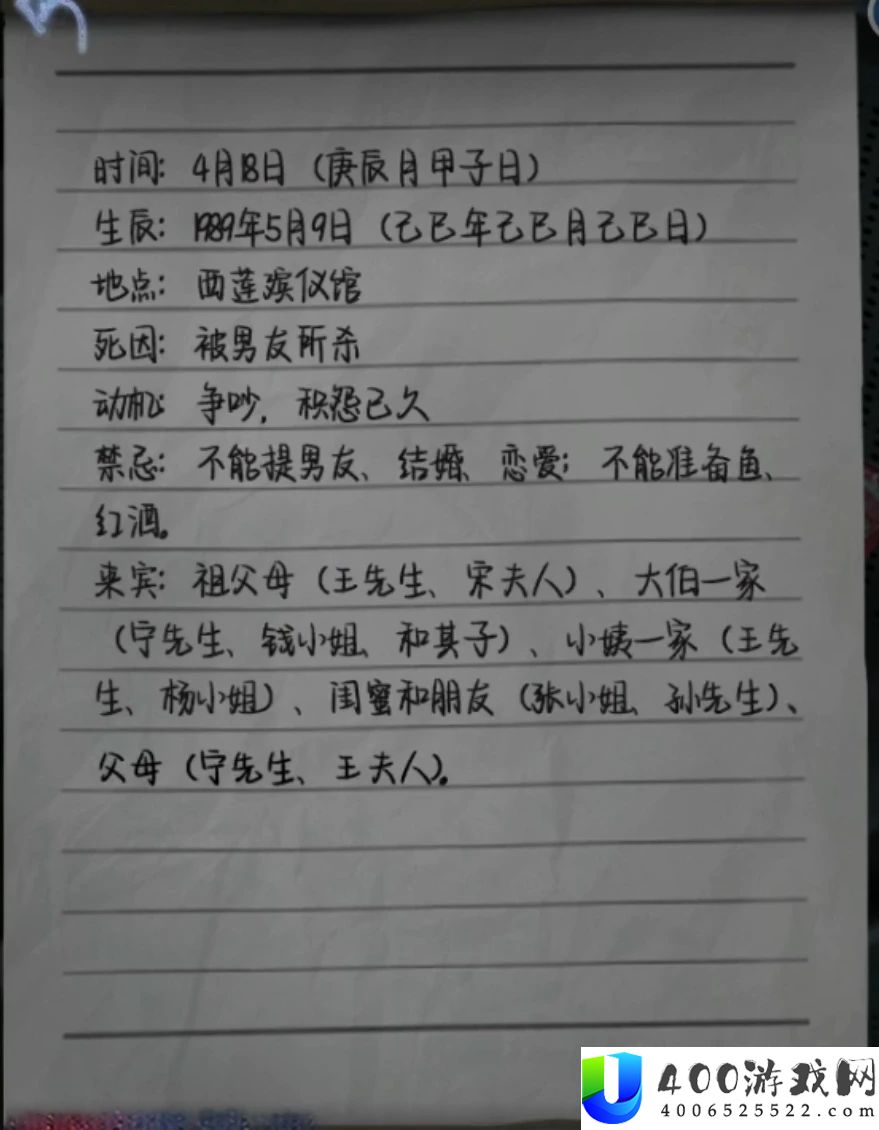 时间：4月18日（庚辰月甲子日）
生辰：1989年5月9日（己巳年己巳月己巳日）
地点：西莲殡仪馆
死因：被男友所杀
动机：争吵，积怨已久
禁忌：不能提男友、结婚、恋爱；不能准备鱼、
红酒。
来宾：祖父母（王先生、宋夫人）、大伯一家
（宁先生、钱小姐、和其子）、小姨一家（王先
生、杨小姐）、闺蜜和朋友（张小姐、孙先生）、
父母（宁先生、王夫人）。
400游戏网
4006525522.com